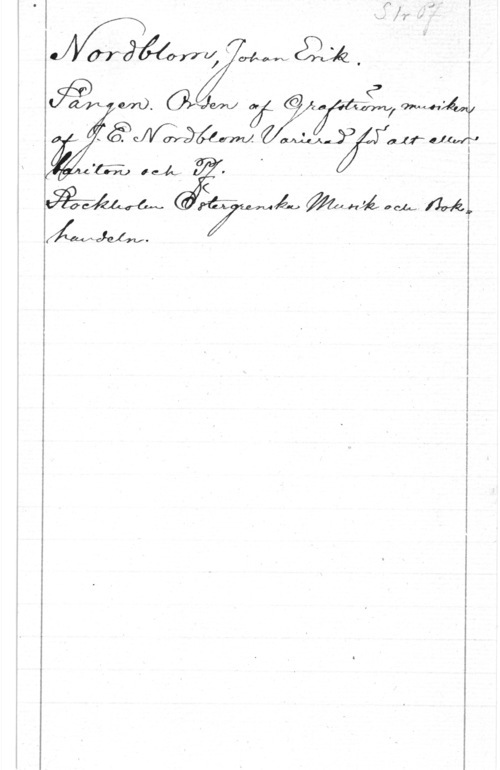 Str 07
Nordblom, Johan Erik.
Fången. Orden af Grafström, musiken
af J. E. Nordblom. Varierad för alt eller
bariton och Pf.
Stockholm Östergrenska Musik och Bok-
handeln.